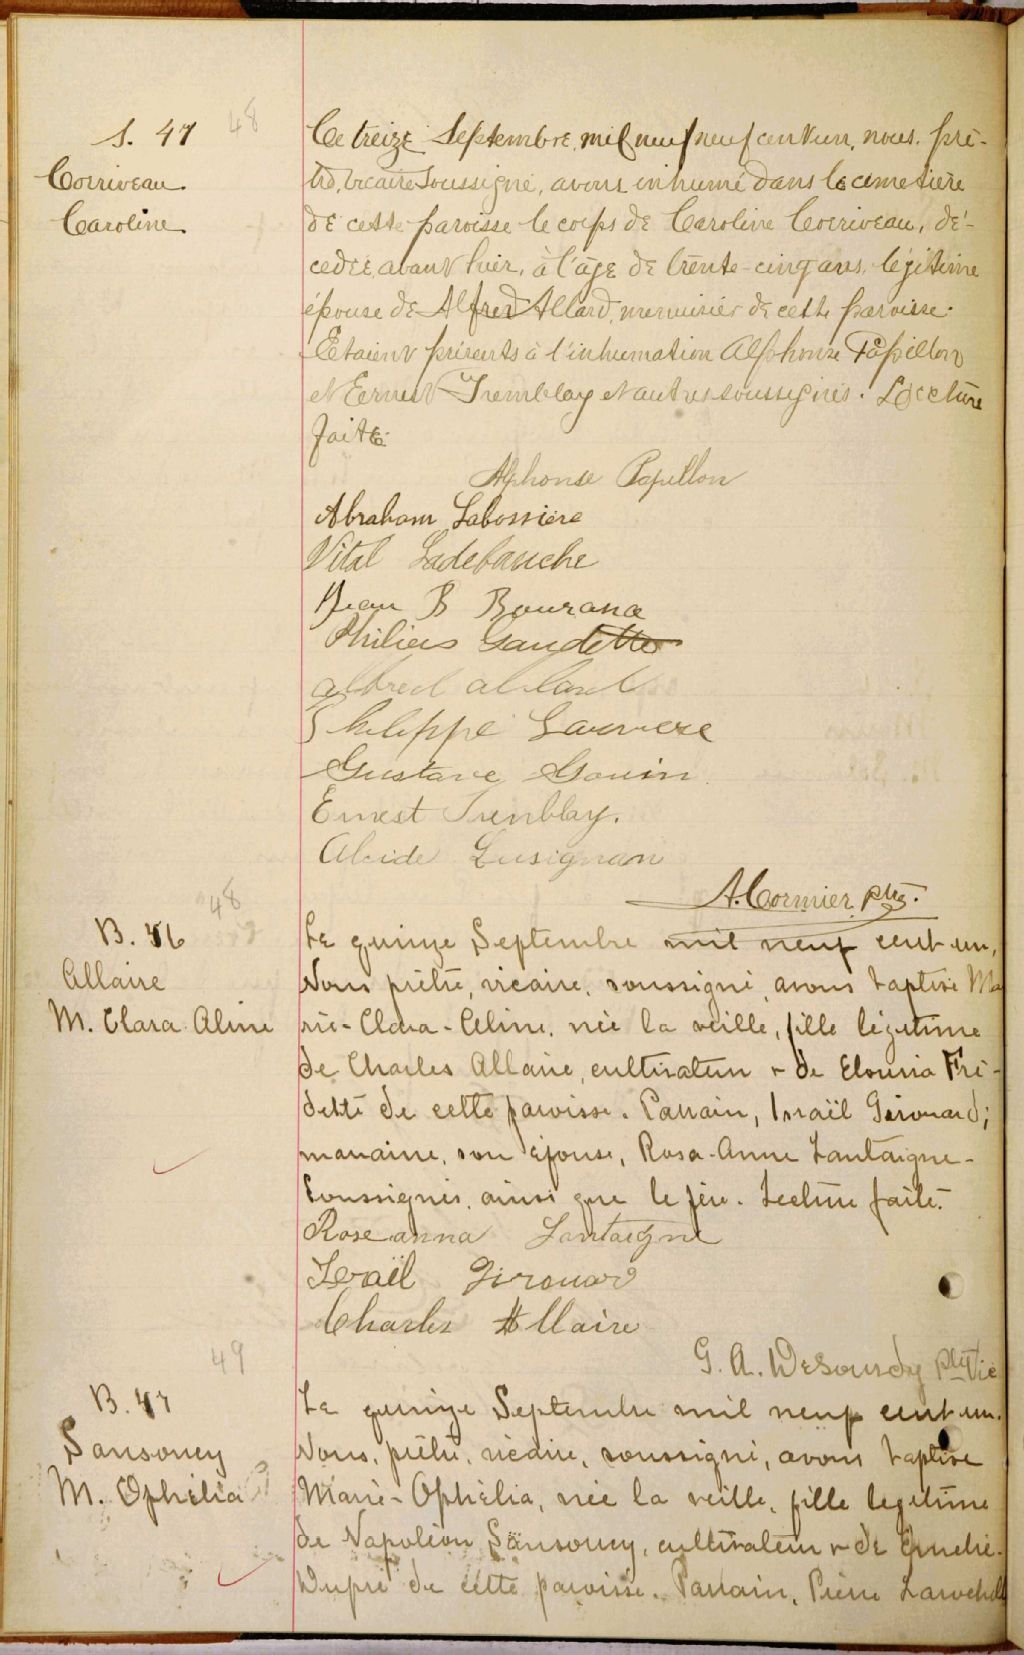 S. 47 48
Corriveau
Caroline
Ce treize Septembre mil neuf neuf cent un, nous, prê-
tre, vicaire soussigné, avons inhumé dans le cimetière
de cette paroisse le corps de Caroline Corriveau, dé-
cédée avant hier, à l'âge de trente-cinq ans, légitime
épouse de Alfred Allard, menuisier de cette paroisse.
Etaient présents à l'inhumation Alphonse Papillon
et Ernest Tremblay et autres soussignés. Lecture
faite
Alphonse Papillon
Abraham Labossiere
Vital Ladebauche
Jean B
Gaudette
alfred allard
Philippe
Gustave Gouin
Ernest Tremblay.
Alcide Lusignan
A. Cormier ptre.
48
B. 46
Allaire
M. Clara Aline
Le quinze Septembre mil neuf cent un,
Nous prêtre, vicaire, soussigné, avons baptisé Ma
rie-Clara-Celine, née la veille, fille légitime
de Charles Allaire, cultivateur & de Fri-
dette de cette paroisse. Parrain, Israël Girouard;
marraine, son épouse, Rosa-Anna Lantaigne-
Soussignés, ainsi que le père. Lecture faite.
Rose anna Lantaigne
Israïl Girouard
Charles Allaire
G. A. Desourdy ptre Vic
49
B. 47
Sansoucy
M. Ophélia
Le quinze Septembre mil neuf cent un.
Nous, prêtre, vicaire, soussigné, avons baptisé
Marie-Ophélia, née la veille, fille légitime
de Napoléon Sansoucy, cultivateur & de
Dupré de cette paroisse. Parrain, Pierre